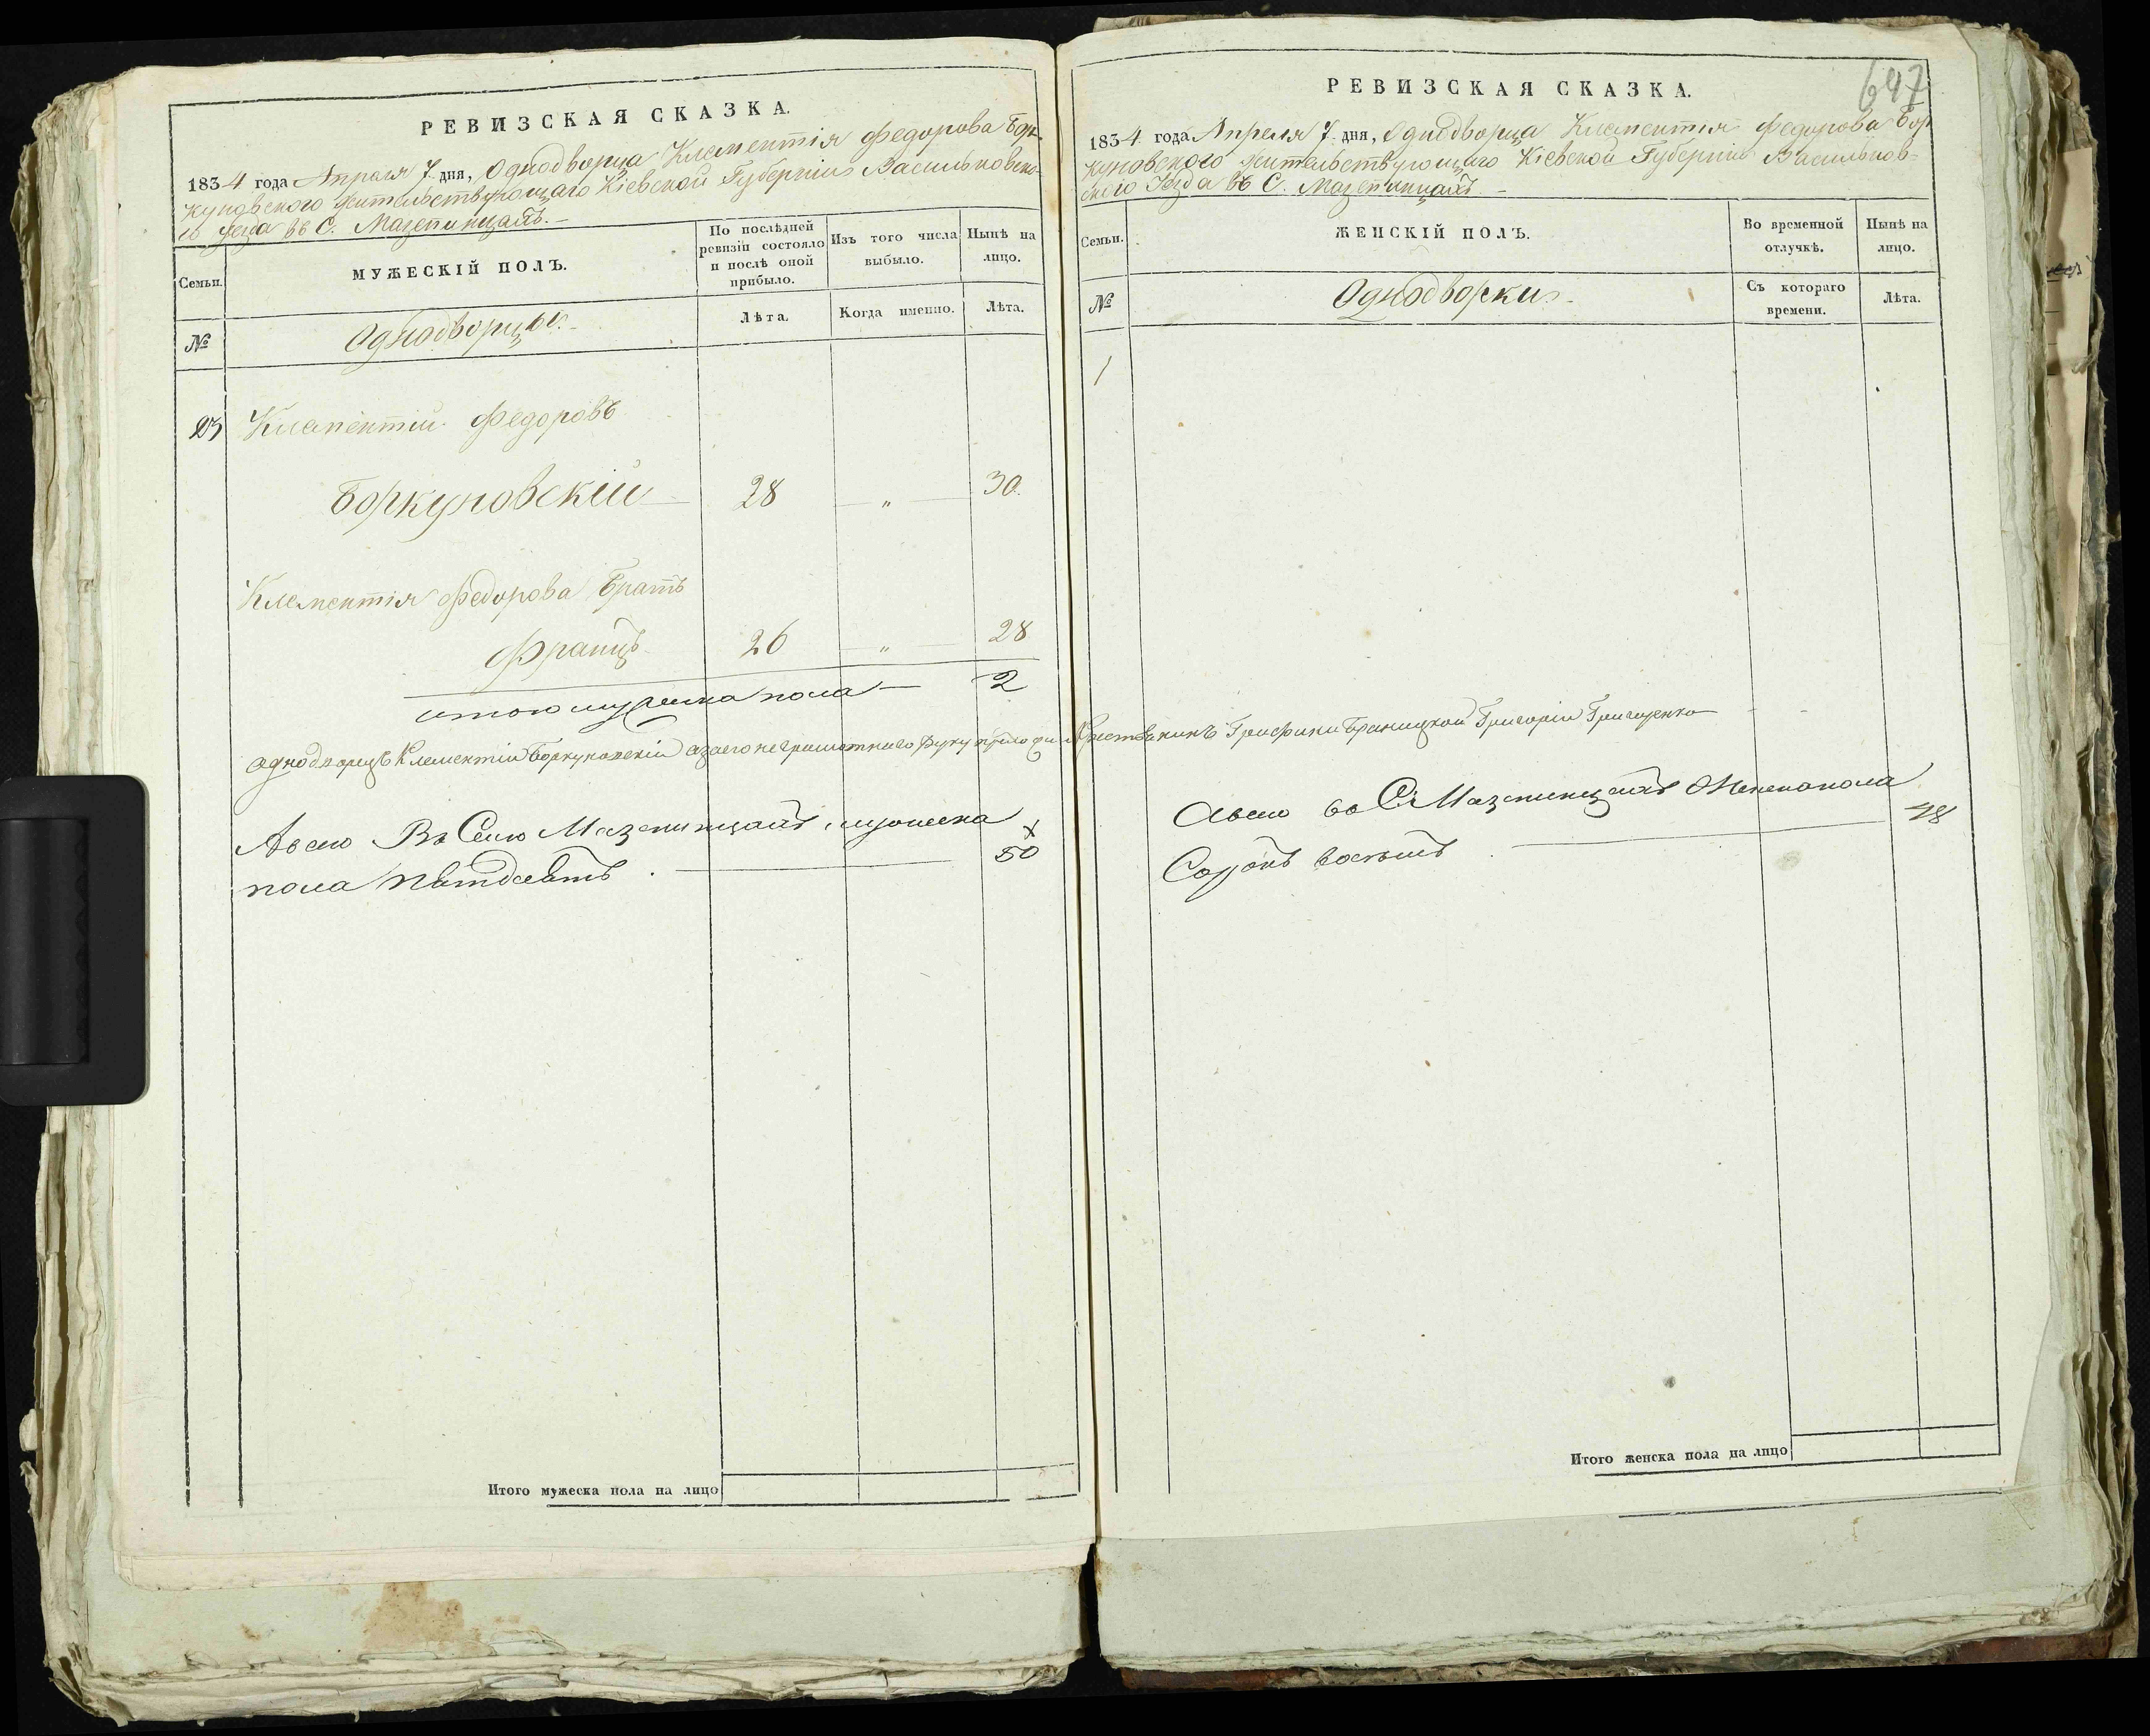 РЕВИЗСКАЯ СКАЗКА.
1834 года Апреля 7 дня, Однодворца Клементія Федорова Бор-
куновского жительствующаго Кіевской Губерніи Васильковско-
го уезда въ С. Мазепинцахъ.—
Семьи.
МУЖЕСКІЙ ПОЛЪ.
По послѣдней ревизіи состояло и послѣ оной прибыло.
Изъ того числа выбыло.
Нынѣ на лицо.
№
Однодворцы.
Лѣта.
Когда именно.
Лѣта.
Клементій Федоровъ
Боркуновскій — 28 — „ — 30.
Клементія Федорова Братъ
Францъ 26 — „ — 28
итого мужеска пола — 2
однодворецъ Клементій Боркуновскій а за его неграмотнаго руку приложи
Авсего Въ Селе Мазепинцахъ мужеска
пола пятдесятъ . — 50
Итого мужеска пола на лицо
647
РЕВИЗСКАЯ СКАЗКА.
1834 года Апреля 7 дня, Однодворца Клементія Федорова Бор
куновского жительствующаго Кіевской Губерніи Васильков-
ского Уезда въ С. Мазепинцахъ. —
Семьи.
ЖЕНСКІЙ ПОЛЪ.
Во временной отлучкѣ.
Нынѣ на лицо.
№
Однодворки.
Съ котораго времени.
Лѣта.
1
Графини Браницкой Григорій Григоренко
Авсего во С. Мазепинцахъ Женска пола
Сорокъ восемъ . — 48
Итого женска пола на лицо